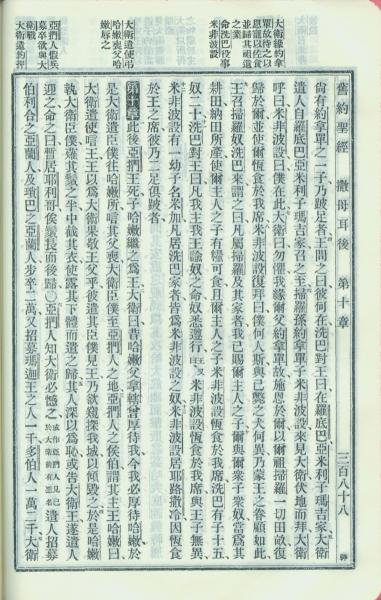 舊約聖經 撒母耳後 第十章 三百八十八
大衛緣約拿單故待之以恩寵以佐食並歸其祖遺之業
命洗巴役事米非波設
尚有約拿單之一子乃跛足者王問之曰彼何在洗巴對王曰在羅底巴亞米利子瑪吉家大衛
遣人自羅底巴亞米利子瑪吉家召之至掃羅孫約拿單子米非波設來見大衛伏地而拜大衛
呼曰米非波設曰僕在此大衛曰勿懼我緣爾父約拿單故施恩於爾以爾祖掃羅一切田畝復
歸於爾並使爾恆食於我席米非波設復拜曰僕何人斯與已斃之犬何異乃蒙王之眷顧如此
王召掃羅奴洗巴來謂之曰凡屬掃羅及其家者我已賜爾主人之子爾與爾衆子衆奴當爲其
耕田納田所產使爾主人之子有糧可食且爾主人之子米非波設恆食於我席洗巴有子十五
奴二十洗巴對王曰凡我主我王諭奴之命奴悉遵行王又曰米非波設恆食於我席與王子無異
米非波設有一幼子名米加凡居洗巴家者皆爲米非波設之奴米非波設居耶路撒冷因恆食
於王之席彼乃二足俱跛者
大衛遣使弔哈嫩喪父哈嫩辱之
第十章此後亞捫王死子哈嫩繼之爲王大衛曰昔哈嫩父拿轄曾厚待我今我必厚待哈嫩於
是大衛遣臣僕往哈嫩所唁其父喪大衛臣僕至亞捫人之地亞捫人之侯伯謂其主王哈嫩曰
大衛遣使唁王王以爲大衛果敬王父乎彼遣其臣僕見王乃欲窺探我城以傾毀之於是哈嫩
執大衛臣僕薙其鬚之半中截其衣使露其下體而遣之歸其人深以爲恥或告大衛王遂遣人
亞捫人假兵募卒欲與大衛戰
大衛遣約押
迎之命之曰暫居耶利哥俟鬚長而後歸○亞捫人知大衛必憾之或作亞捫人見己於大衛前有惡名遣人招募
伯利合之亞蘭人及瑣巴之亞蘭人步卒二萬又招募瑪迦王之人一千多伯人一萬二千大衛